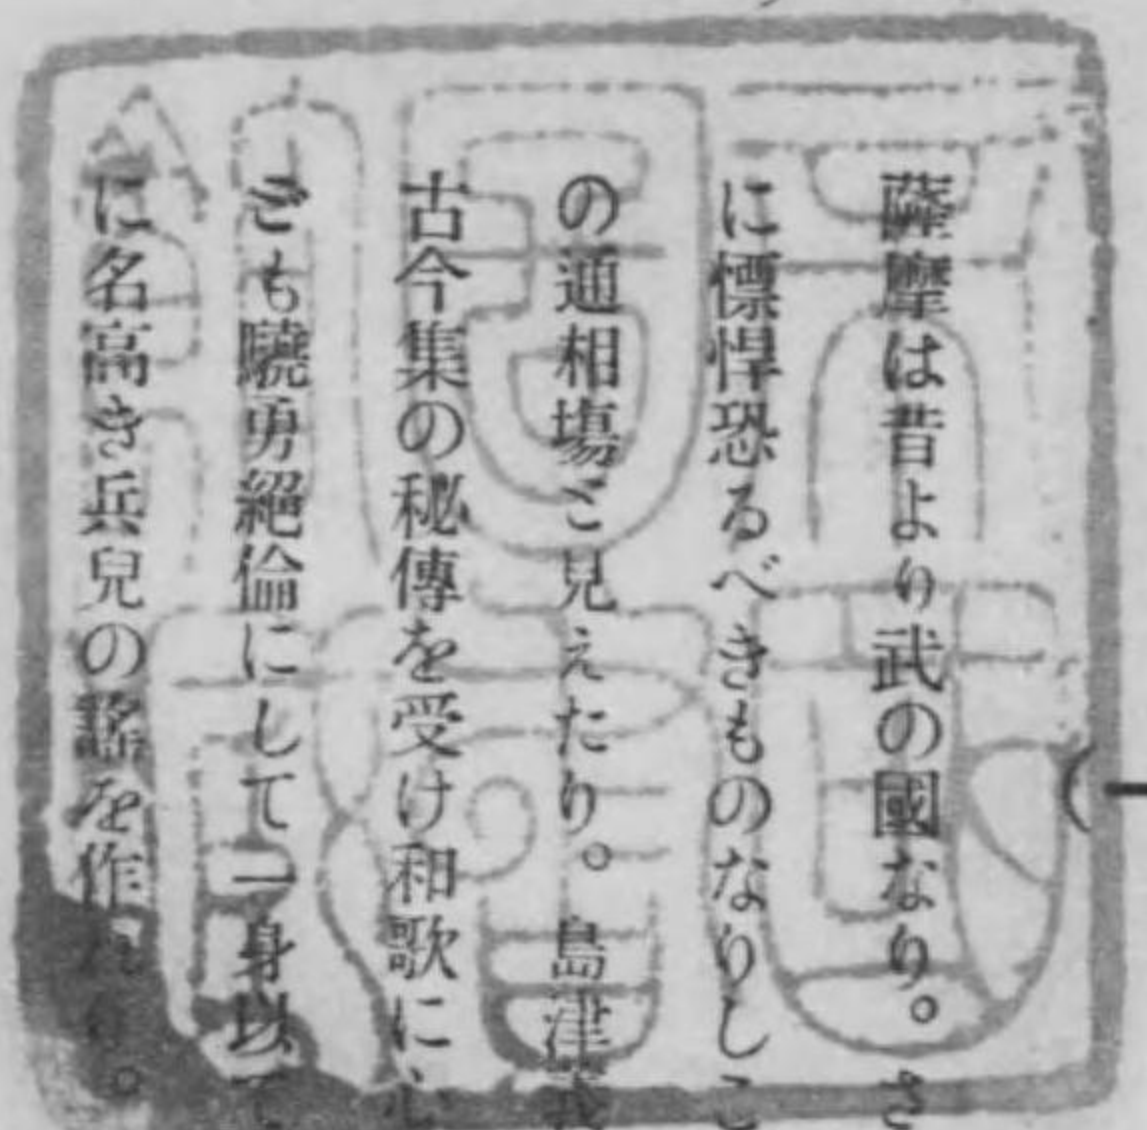 薩摩は昔より武の國なり。さ
に慓悍恐るべきものなりしこ
の通相塲と見えたり。島津義
古今集の秘傳を受け和歌に心
ども驍勇絕倫にして一身以て
に名高き兵兒の謠を作れり。